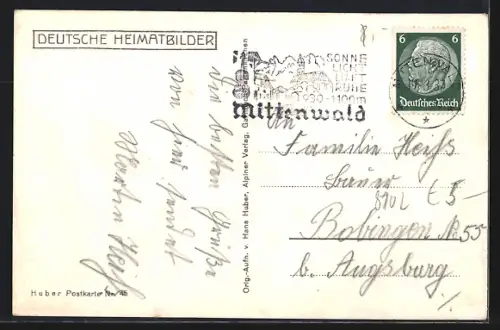 DEUTSCHE HEIMATBILDER
Die besten Grüße
von hier sendet
Martin Heiß
Huber Postkarte Nr. 45
Orig.-Aufn. v. Hans Huber, Alpiner Verlag,
SONNE
LICHT
LUFT
RUHE
930-1100m
Mittenwald
6 6
Deutsches Reich
An
Familie Heiß
Bauer
Bobingen No 55
b. Augsburg
£5-